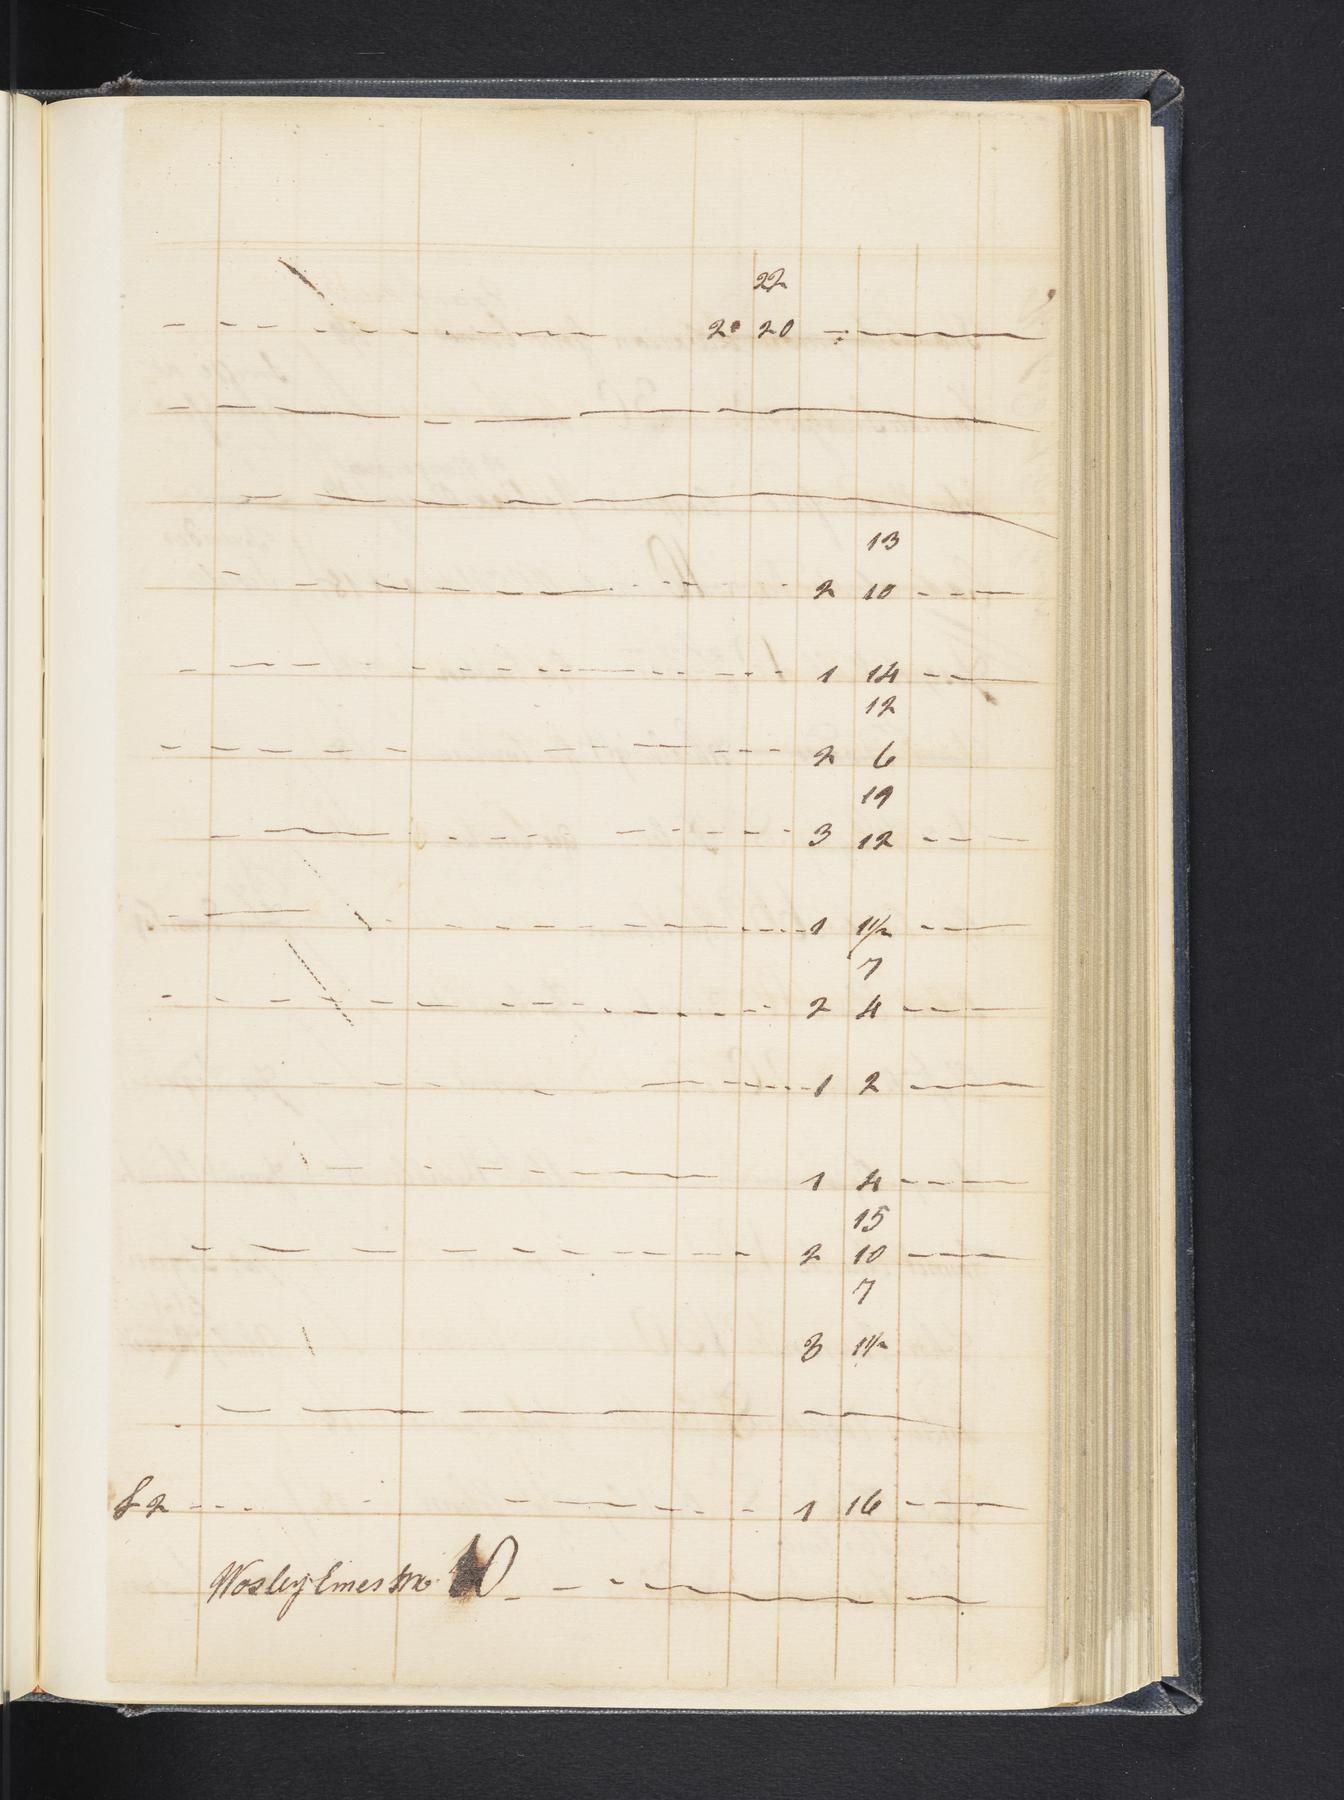 22
2 20
13
2 10
1 14
12
2 6
19
3 12
1 1½
7
2 4
1 2
1 4
15
2 10
7
3 1½
& 2 1 16
Wosley